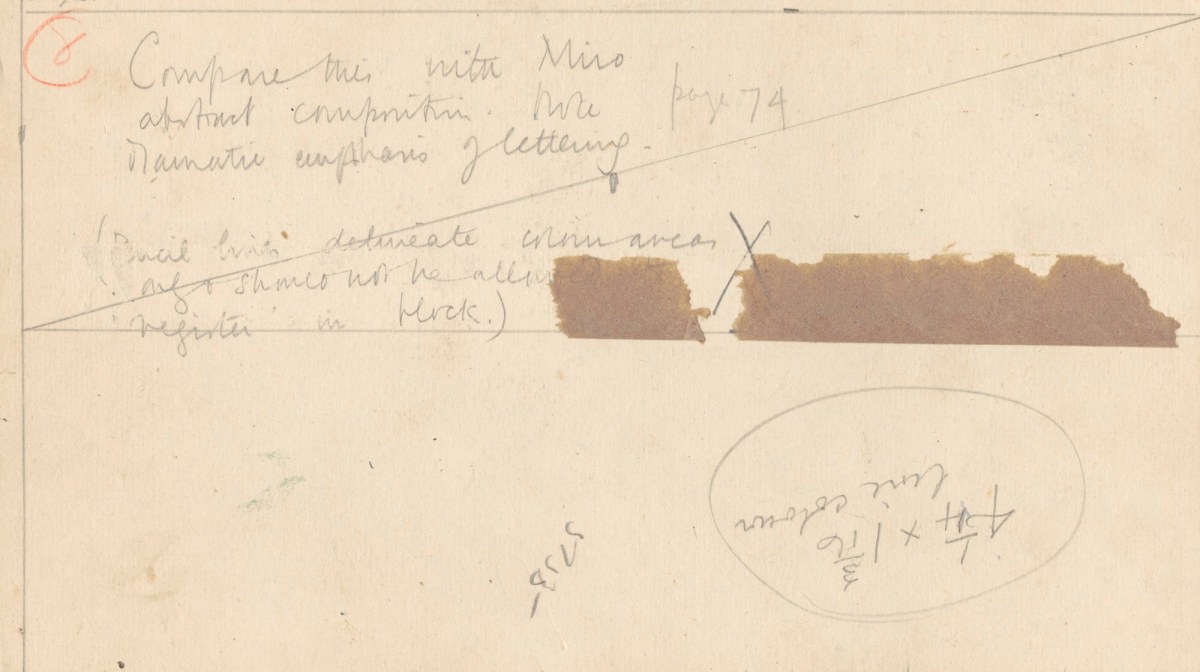 8
Compare this with Miro
abstract composition. Note
dramatic emphasis of lettering.
page 74
(Pencil lines delineate colour areas
only & should not be allowed
register in block.)
4 1/4 × 1 3/16
line colour
573B